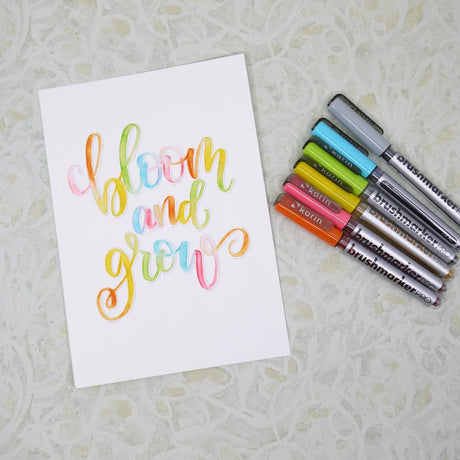 bloom
and
grow
karin
brushmarker
karin
brushmarker
karin
brushmarker
karin
brushmarker
karin
brushmarker